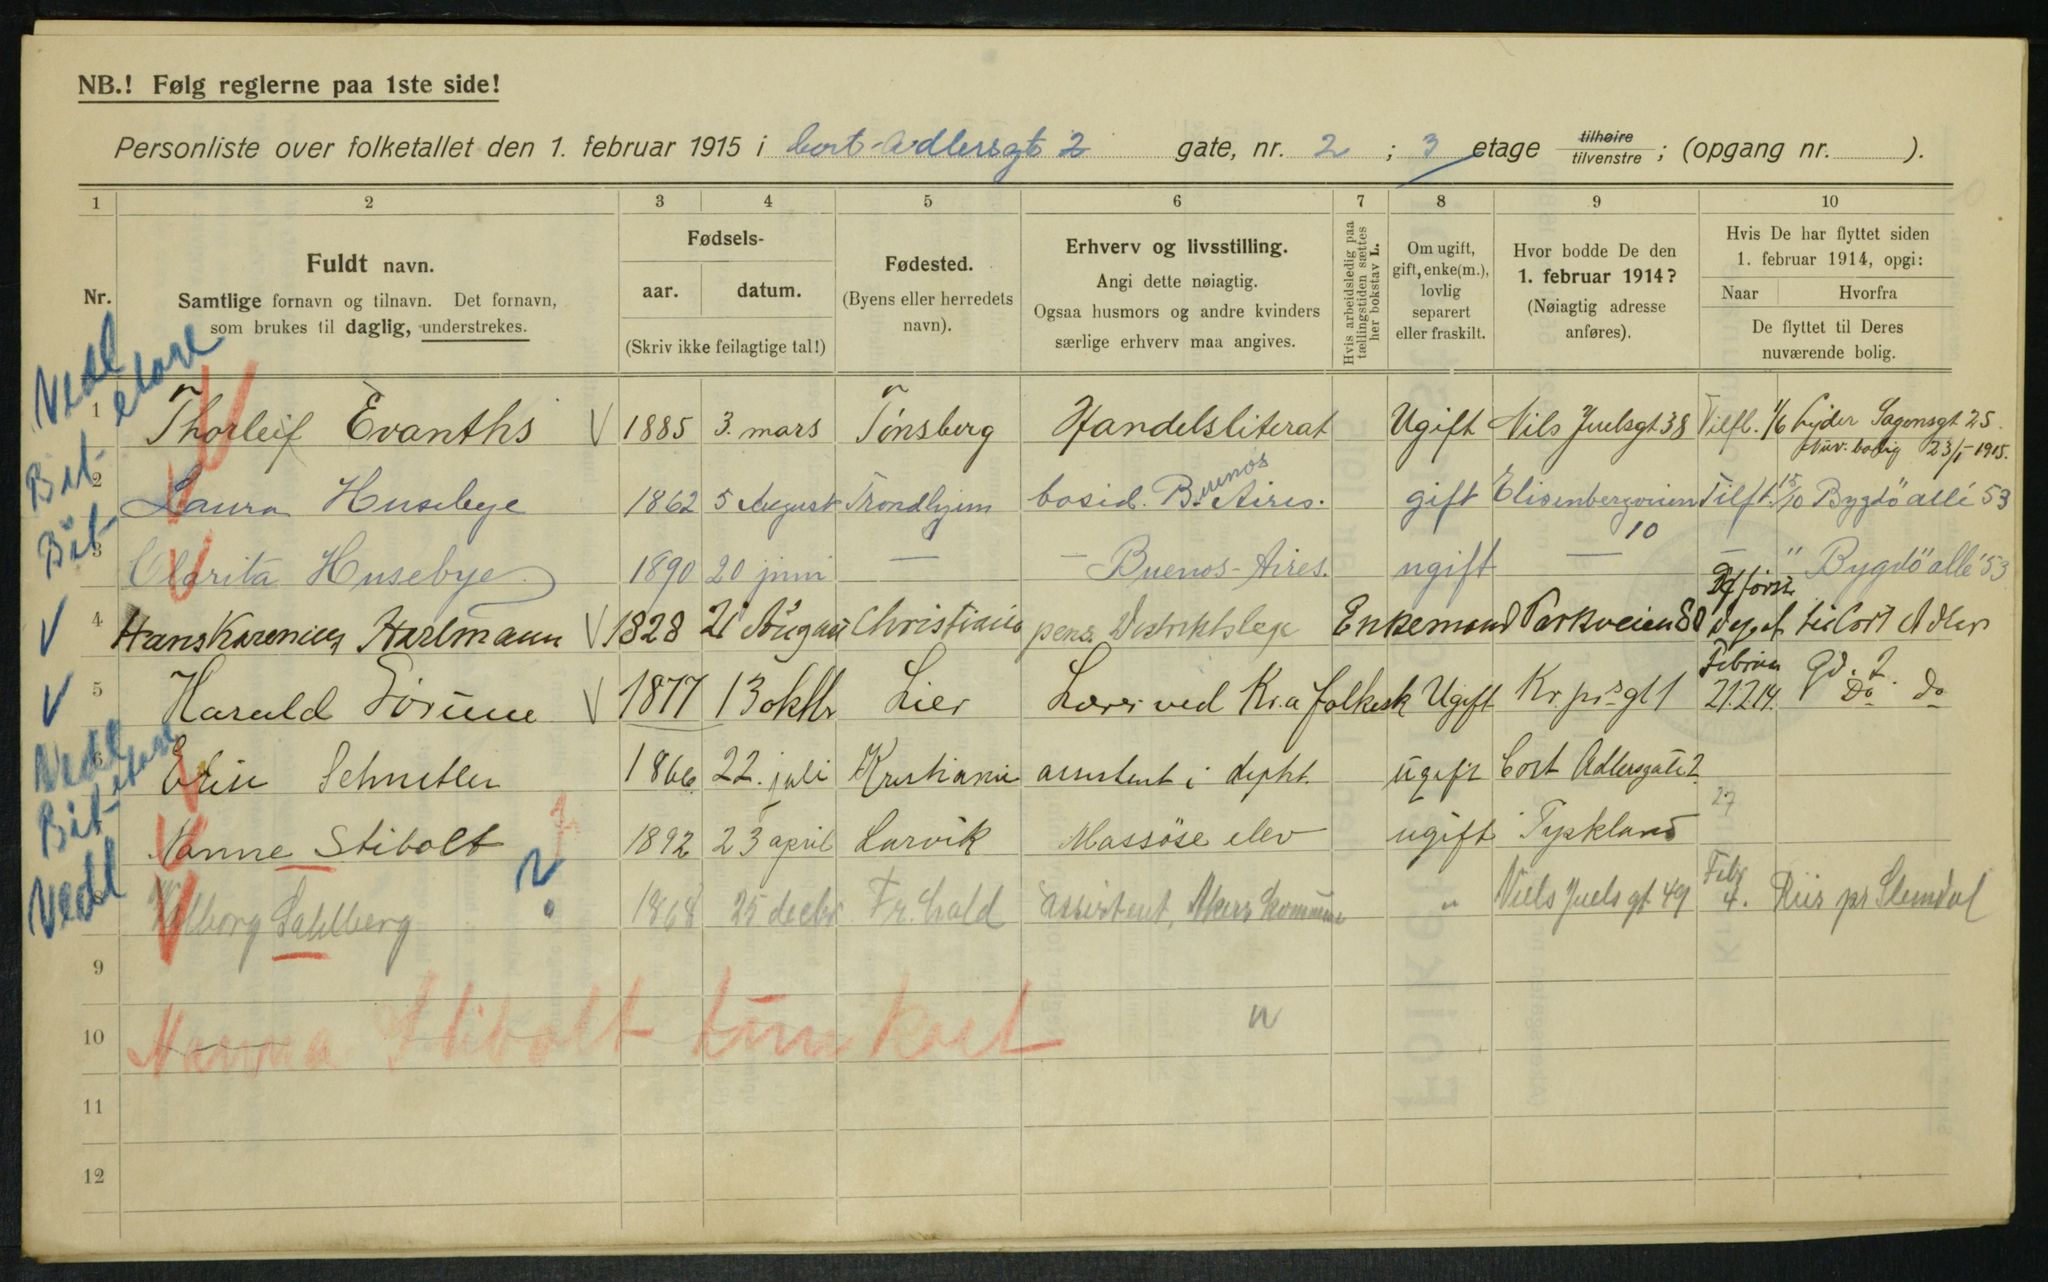 NB.! Følg reglerne paa 1ste side!
Personliste over folketallet den 1. februar 1915 i Cort-Adlersgt 2 gate, nr. 2 ; 3 etage tilhøire tilvenstre ; (opgang nr. ).
1 2 3 4 5 6 7 8 9 10
Nr.
Fuldt navn.
Samtlige fornavn og tilnavn. Det fornavn,
som brukes til daglig, understrekes.
Fødsels-
aar. datum.
(Skriv ikke feilagtige tal!)
Fødested.
(Byens eller herredets
navn).
Erhverv og livsstilling.
Angi dette nøiagtig.
Ogsaa husmors og andre kvinders
særlige erhverv maa angives.
Hvis arbeidsledig paa
tællingstiden sættes
her bokstav L.
Om ugift,
gift, enke(m.),
lovlig
separert
eller fraskilt.
Hvor bodde De den
1. februar 1914?
(Nøiagtig adresse
anføres).
Hvis De har flyttet siden
1. februar 1914, opgi:
Naar Hvorfra
De flyttet til Deres
nuværende bolig.
Vedl
1 Thorleif Evanths 1885 3. mars Tønsberg Handelsliterat Ugift Nils Juelsgt 38 Tilfl. 1/6 Lyder Sagensgt 25.
Nuv. bolig 23/1-1915.
Bit-
2 Laura Husebye 1862 5 August Trondhjem bosid. Buenos Aires. gift Elisenbergveien 10 Tilft. 15/10 Bygdö allé 53
Bit-
3 Clarita Husebye 1890 20 juni — — Buenos-Aires. ugift — — " Bygdö allé 53
4 Hans Karenius Hartmann 1828 21 August Christiania pens. Distriktslege Enkemand Parkveien til Cort Adlers
Februar Gd. 2.
5 Harald Sørum 1877 13 oktbr Lier Lærer ved Kr.a folkesk Ugift Kr. prs gt 1 21.2.14. Do Do
Vedl
6 Elise Schnitler 1866 22. juli Kristiania assistent i depht. ugift Cort Adlersgate 2.
Bit-
27
Nanne Stibolt 1892 23 april Larvik Massöse elev ugift Tyskland
Vedl
8 Valborg Sahlberg 1868 25 decbr Fr.hald assistent, Akers kommune " Niels Juels gt 49 Febr 4. Riis pr Slemdal
9
10 Nanna Stibolt tun kort
n
11
12